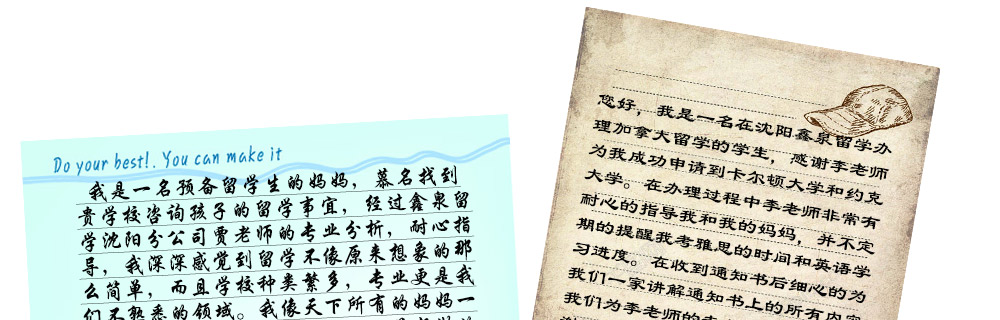 Do your best!. You can make it
我是一名预备留学生的妈妈，慕名找到
贵学校咨询孩子的留学事宜，经过鑫泉留
学沈阳分公司贾老师的专业分析，耐心指
导，我深深感觉到留学不像原来想象的那
么简单，而且学校种类繁多，专业更是我
们不熟悉的领域。我像天下所有的妈妈一
您好，我是一名在沈阳鑫泉留学办
理加拿大留学的学生，感谢李老师
为我成功申请到卡尔顿大学和约克
大学。在办理过程中李老师非常有
耐心的指导我和我的妈妈，并不定
期的提醒我考雅思的时间和英语学
习进度。在收到通知书后细心的为
我们一家讲解通知书上的所有内容
我们为李老师的